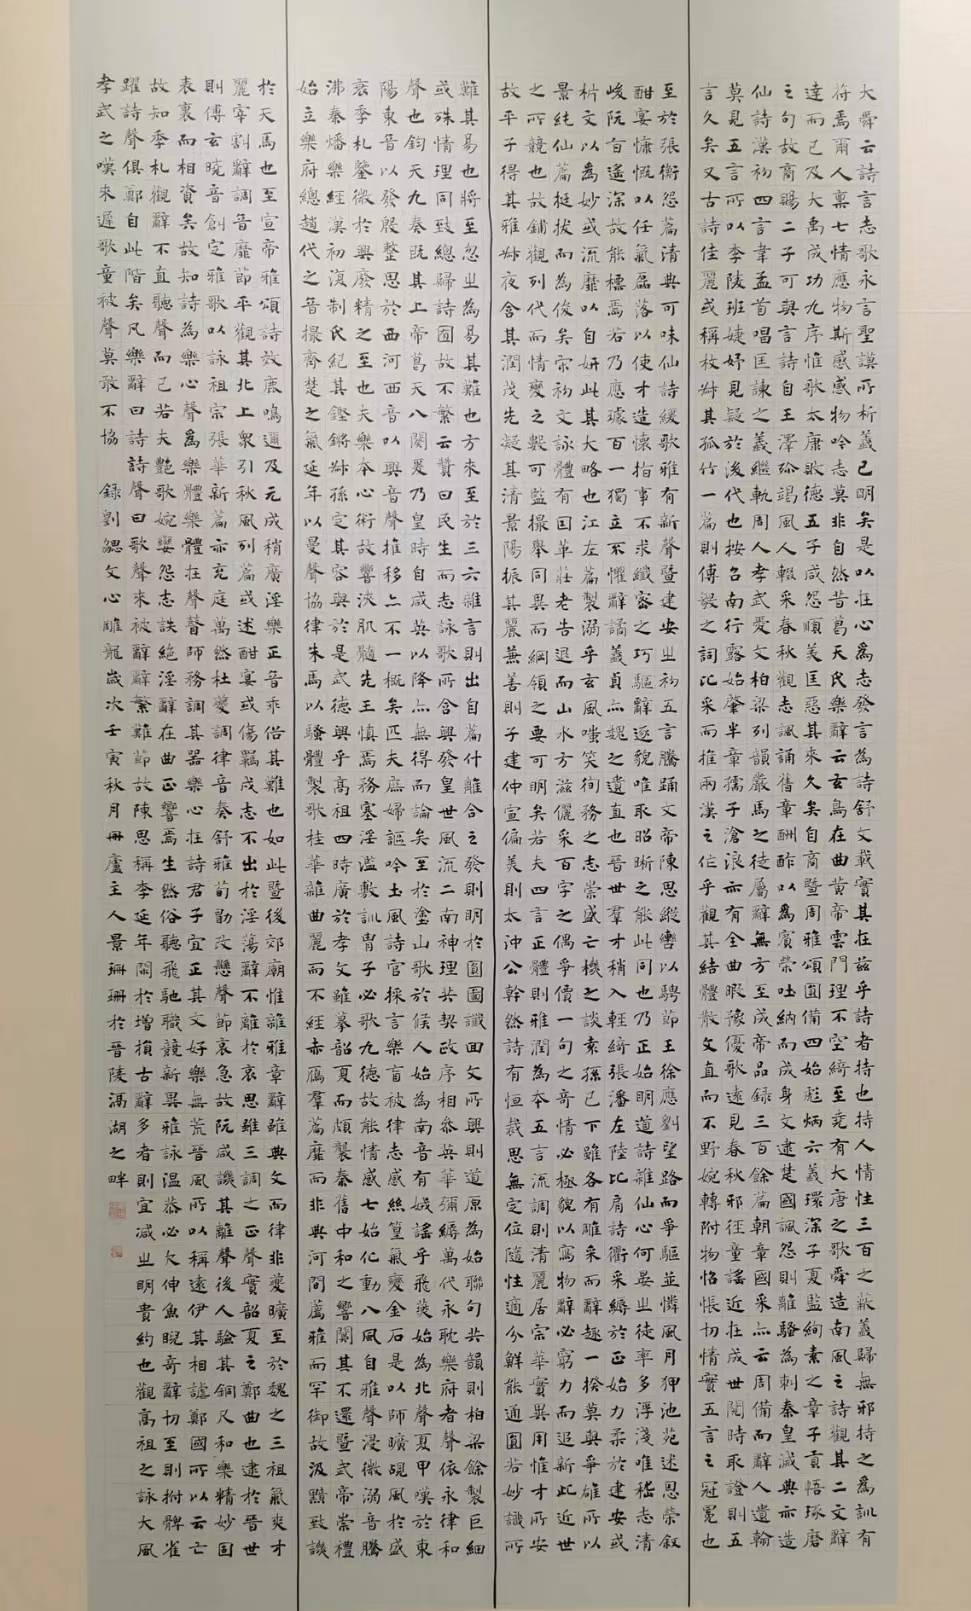 大舜云詩言志歌永言聖謨所析義已明矣是以在心為志發言為詩舒文載實其在茲乎詩者持也持人情性三百之蔽義歸無邪持之為訓有
符焉爾人稟七情應物斯感感物吟志莫非自然昔葛天氏樂辭云玄鳥在曲黃帝雲門理不空綺至堯有大唐之歌舜造南風之詩觀其二文辭
達而已及大禹成功九序惟歌太康敗德五子咸怨順美匡惡其來久矣自商暨周雅頌圓備四始彪炳六義環深子夏監絢素之章子貢悟琢磨
之句故商賜二子可與言詩自王澤殄竭風人輟采春秋觀志諷誦舊章酬酢以為賓榮吐納而成身文逮楚國諷怨則離騷為刺秦皇滅典亦造
仙詩漢初四言韋孟首唱匡諫之義繼軌周人孝武愛文柏梁列韻嚴馬之徒屬辭無方至成帝品錄三百餘篇朝章國采亦云周備而辭人遺翰
莫見五言所以李陵班婕妤見疑於後代也按召南行露始肇半章孺子滄浪亦有全曲暇豫優歌遠見春秋邪徑童謠近在成世閱時取證則五
言久矣又古詩佳麗或稱枚叔其孤竹一篇則傅毅之詞比采而推兩漢之作乎觀其結體散文直而不野婉轉附物怊悵切情實五言之冠冕也
至於張衡怨篇清典可味仙詩緩歌雅有新聲暨建安之初五言騰踊文帝陳思縱轡以騁節王徐應劉望路而爭驅並憐風月狎池苑述恩榮叙
酣宴慷慨以任氣磊落以使才造懷指事不求纖密之巧驅辭逐貌唯取昭晰之能此同也乃正始明道詩雜仙心何晏之徒率多浮淺唯嵇志清
峻阮旨遙深故能標焉若乃應璩百一獨立不懼辭譎義貞亦魏之遺直也晉世羣才稍入輕綺張潘左陸比肩詩衢采縟於正始力柔於建安或
析文以為妙或流靡以自妍此其大略也江左篇製溺乎玄風嗤笑徇務之志崇盛亡機之談袁孫已下雖各有雕采而辭趣一揆莫與爭雄所以
景純仙篇挺拔而為俊矣宋初文詠體有因革莊老告退而山水方滋儷采百字之偶爭價一句之奇情必極貌以寫物辭必窮力而追新此近世
之所競也故鋪觀列代而情變之數可監撮舉同異而綱領之要可明矣若夫四言正體則雅潤為本五言流調則清麗居宗華實異用惟才所安
故平子得其雅叔夜含其潤茂先凝其清景陽振其麗兼善則子建仲宣偏美則太沖公幹然詩有恒裁思無定位隨性適分鮮能通圓若妙識所
難其易也將至忽之為易其難也方來至於三六雜言則出自篇什離合之發則明於圖讖回文所興則道原為始聯句共韻則柏梁餘製巨細
或殊情理同致總歸詩囿故不繁云贊曰民生而志詠歌所含興發皇世風流二南神理共契政序相參英華彌縟萬代永耽樂府者聲依永律和
聲也鈞天九奏既其上帝葛天八闋爰乃皇時自咸英以降亦無得而論矣至於塗山歌於候人始為南音有娀謠乎飛燕始為北聲夏甲嘆於東
陽東音以發殷整思於西河西音以興音聲推移亦不一概矣匹夫庶婦謳吟土風詩官採言樂盲被律志感絲篁氣變金石是以師曠覘風於盛
衰季札鑒微於興廢精之至也夫樂本心術故響浹肌髓先王慎焉務塞淫濫敷訓胄子必歌九德故能情感七始化動八風自雅聲浸微溺音騰
沸秦燔樂經漢初復制氏紀其鏗鏘叔孫定其容與於是武德興乎高祖四時廣於孝文雖摹韶夏而頗襲秦舊中和之響闃其不還暨武帝崇禮
始立樂府總趙代之音撮齊楚之氣延年以曼聲協律朱馬以騷體製歌桂華雜曲麗而不經赤鴈羣篇靡而非典河間薦雅而罕御故汲黯致譏
於天馬也至宣帝雅頌詩效鹿鳴邇及元成稍廣淫樂正音乖俗其難也如此暨後郊廟惟雜雅章辭雖典文而律非夔曠至於魏之三祖氣爽才
麗宰割辭調音靡節平觀其北上眾引秋風列篇或述酣宴或傷羈戍志不出於淫蕩辭不離於哀思雖三調之正聲實韶夏之鄭曲也逮於晉世
則傅玄曉音創定雅歌以詠祖宗張華新篇亦充庭萬然杜夔調律音奏舒雅荀勖改懸聲節哀急故阮咸譏其離聲後人驗其銅尺和樂精妙固
表裏而相資矣故知詩為樂心聲為樂體樂體在聲瞽師務調其器樂心在詩君子宜正其文好樂無荒晉風所以稱遠伊其相謔鄭國所以云亡
故知季札觀辭不直聽聲而已若夫艷歌婉孌怨志詄絕淫辭在曲正響焉生然俗聽飛馳職競新異雅詠溫恭必欠伸魚睨奇辭切至則拊髀雀
躍詩聲俱鄭自此階矣凡樂辭曰詩詩聲曰歌聲來被辭辭繁難節故陳思稱李延年閑於增損古辭多者則宜減之明貴約也觀高祖之詠大風
孝武之嘆來遲歌童被聲莫敢不協　錄劉勰文心雕龍歲次壬寅秋月冊廬主人景珊珊於晉陵滆湖之畔